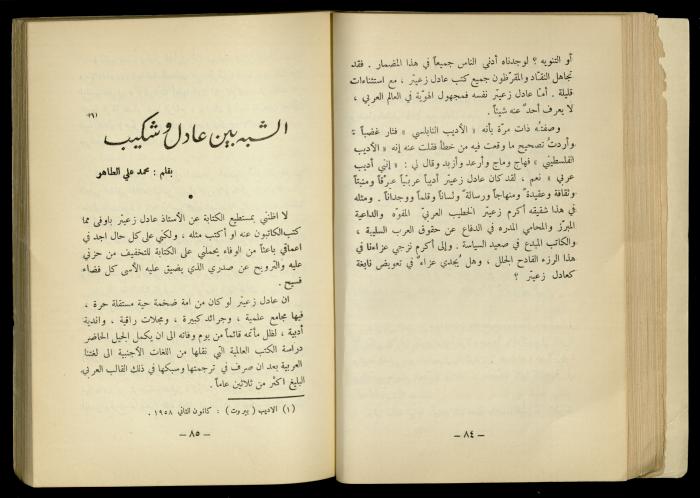 أو التنويه ؟ لوجدناه أدنى الناس جميعاً في هذا المضمار . فقد
تجاهل النقّاد والمقرّظون جميع كتب عادل زعيتر ، مع استثناءات
قليلة . أمّا عادل زعيتر نفسه فمجهول الهويّة في العالم العربي ،
لا يعرف أحدٌ عنه شيئاً .
وصفتُه ذات مرّة بأنه « الأديب النابلسي » فثار غضباً
وأردتُ تصحيح ما وقعت فيه من خطأ فقلت عنه إنه « الأديب
الفلسطيني » فهاج وماج وأرعد وأزبد وقال لي : « إنني أديب
عربي » نعم ، لقد كان عادل زعيتر أديباً عربيّاً عرقاً ومنبتاً
وثقافة وعقيدة ومنهاجاً ورسالةً ولساناً وقلماً ووجداناً . ومثله
في هذا شقيقه أكرم زعيتر الخطيب العربيّ المفوّه والداعية
المبرّز والمحامي المدره في الدفاع عن حقوق العرب السليبة ،
والكاتب المبدع في صعيد السياسة . وإلى أكرم نزجي عزاءنا في
هذا الرزء الفادح الجلل ، وهل يُجدي عزاءٌ في تعويض نابغة
كعادل زعيتر ؟
— ٨٤ —
الشبه بين عادل وشكيب (١)
بقلم : محمد علي الطاهر
لا اظنني بمستطيع الكتابة عن الأستاذ عادل زعيتر بأوفى مما
كتب الكاتبون عنه او أكتب مثله ، ولكني على كل حال اجد في
اعماقي باعثاً من الوفاء يحملني على الكتابة للتخفيف من حزني
عليه والترويح عن صدري الذي يضيق عليه الأسى كل فضاء
فسيح .
ان عادل زعيتر لو كان من امة ضخمة حية مستقلة حرة ،
فيها مجامع علمية ، وجرائد كبيرة ، ومجلات راقية ، واندية
أدبية ، لظل مأتمه قائماً من يوم وفاته الى ان يكمل الجيل الحاضر
دراسة الكتب العالمية التي نقلها من اللغات الأجنبية الى لغتنا
العربية بعد ان صرف في ترجمتها وسبكها في ذلك القالب العربي
البليغ اكثر من ثلاثين عاماً .
(١) الاديب ( بيروت ) : كانون الثاني ١٩٥٨ .
— ٨٥ —